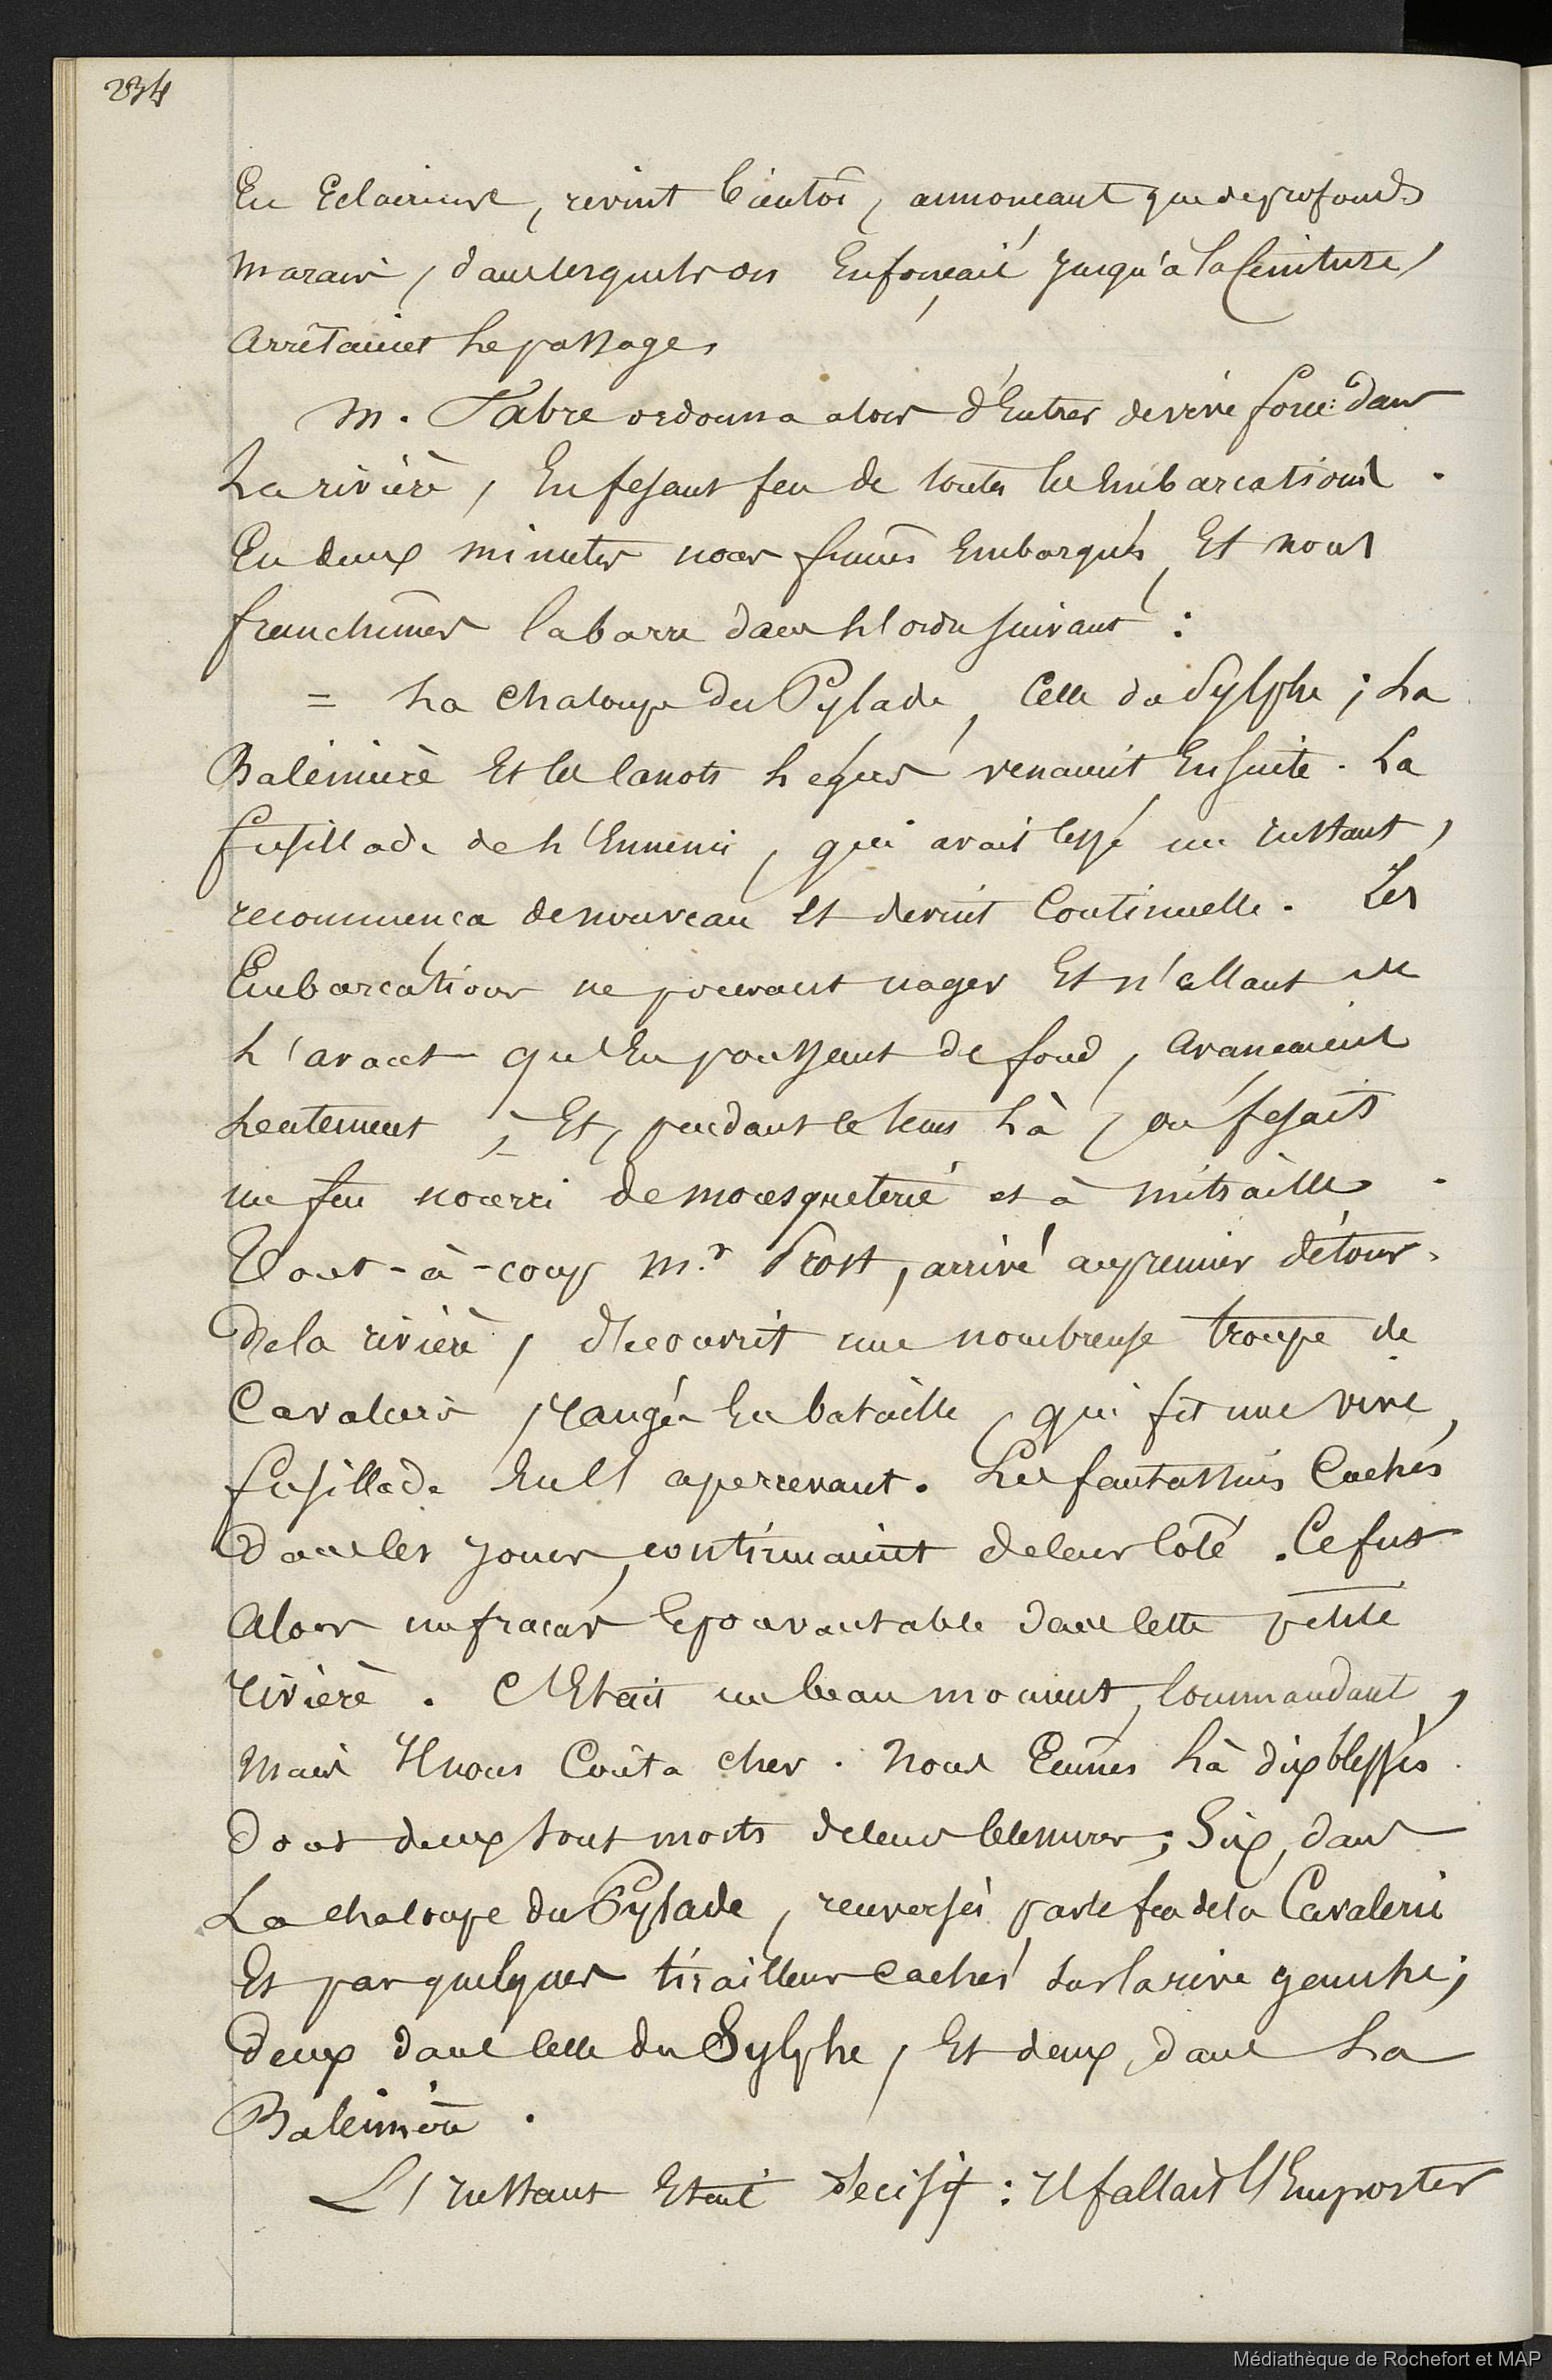 234
En Eclaireur, revint bientôt, annonçant que de profonds
marais, dans lesquels on Enfonçait jusqu'à la Ceinture,
arrêtaient le passage,
M. Fabre ordonna alors d'Entrer de vive force dans
La rivière, En fesant feu de toutes les Embarcations.
En deux minutes nous fumes Embarqués, Et nous
franchîmes la barre dans l'ordre suivant :
= La chaloupe du Pylade, Celle du Sylphe ; La
Baleinière Et les Canots Légers venaient Ensuite. La
fusillade de l'Ennemi, qui avait Cessé un Instant,
recommença de nouveau Et devint Continuelle. Les
Embarcations ne pouvant nager Et n'allant de
L'avant qu'En poussant de fond, avançaient
Lentement ; Et, pendant ce tems Là, on fesait
un feu nourri de mousqueterie et à mitraille.
Tout-à-coup M.r Prost, arrivé au premier détour
De la rivière, découvrit une nombreuse troupe de
Cavaliers, rangés En bataille, qui fit une vive
fusillade En l' apercevant. Les fantassins Cachés
Dans les joncs, continuaient de leur Coté. Ce fut
alors un fracas Epouvantable dans Cette petite
rivière. C'Etait un beau moment, Commandant,
mais Il nous Coûta cher. Nous Eumes Là dix blessés
Dont deux sont morts de leurs blessures ; Six, dans
La chaloupe du Pylade, renversés par le feu de la Cavalerie
Et par quelques tirailleurs cachés sur la rive gauche ;
Deux dans Celle du Sylphe, Et deux, dans La
Baleinière.
L'Instant Etait décisif : Il fallait l'Emporter
Médiathèque de Rochefort et MAP